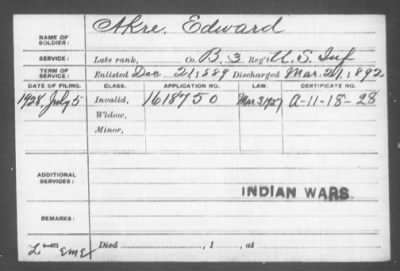 NAME OF SOLDIER: Akre, Edward
SERVICE: Late rank, Co. B, 3 Reg't U.S. Inf
TERM OF SERVICE: Enlisted Dec 21 1889 Discharged Mar. 21, 1892
DATE OF FILING. CLASS. APPLICATION NO. LAW. CERTIFICATE NO.
1928, July 5 Invalid, 1618750 Mar 3 1927 A-11-18-28
Widow,
Minor,
ADDITIONAL SERVICES:
INDIAN WARS.
REMARKS:
Died , 1 , at